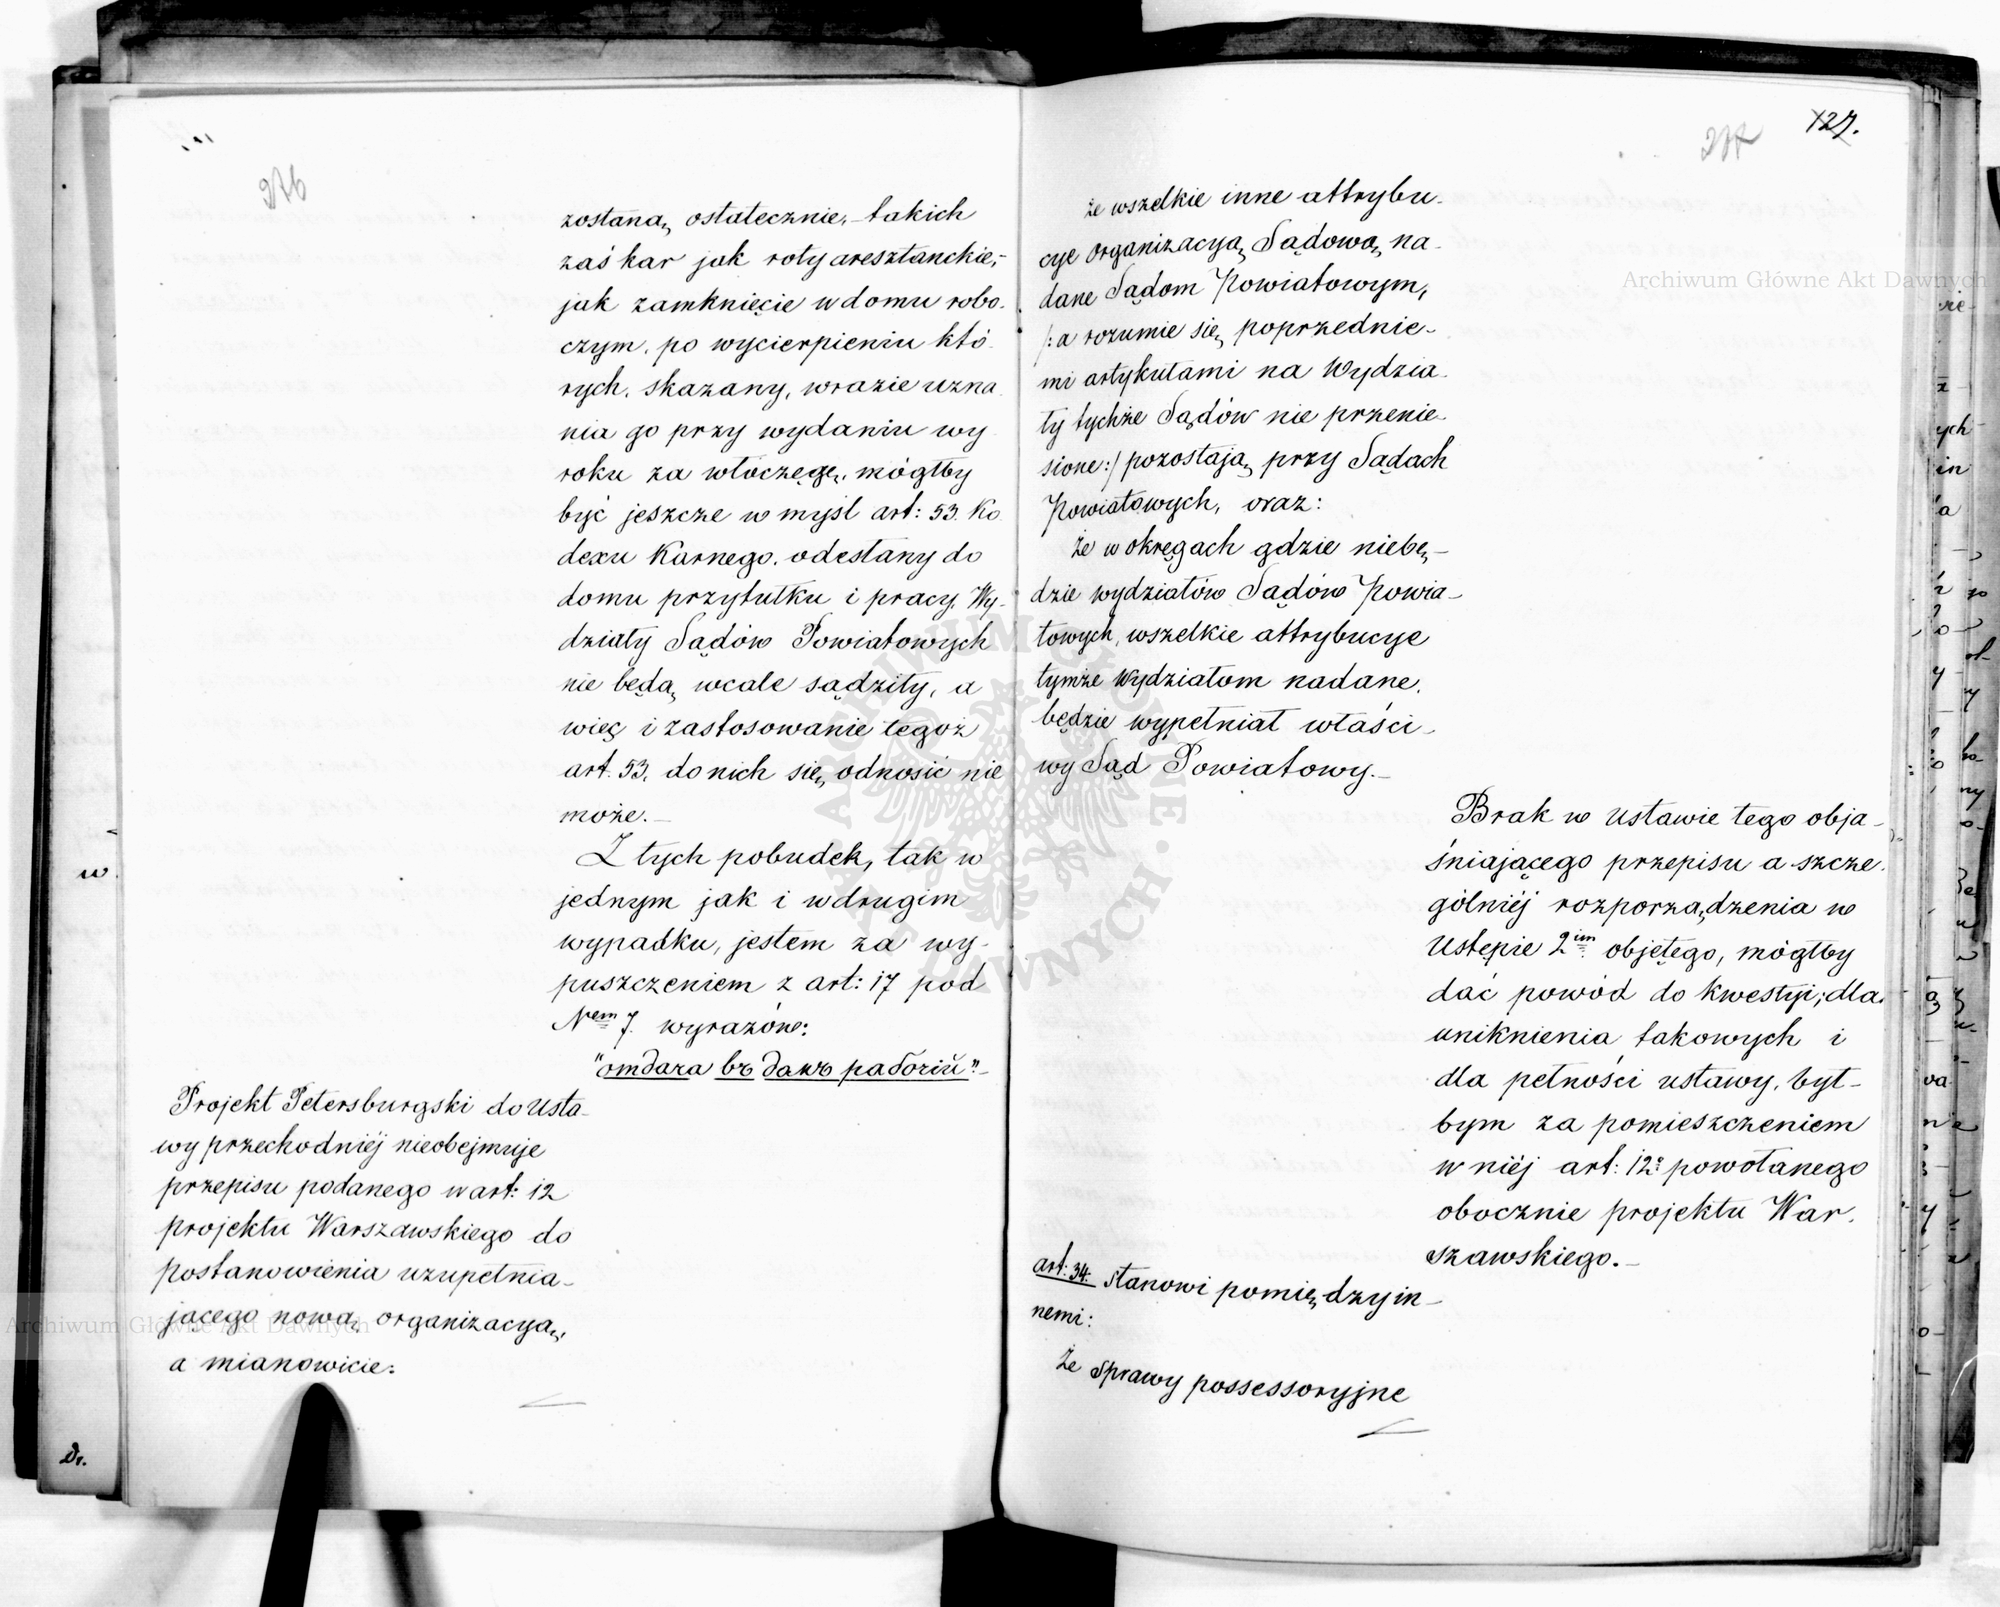 276
zostaną ostatecznie, takich
zaś kar jak roty aresztanckie,
jak zamknięcie w domu robo-
czym, po wycierpieniu któ-
rych, skazany, wrazie uzna
nia go przy wydaniu wy
roku za włóczęgę, mógłby
być jeszcze w myśl art: 53. Ko
dexu Karnego, odesłany do
domu przytułku i pracy, Wy-
działy Sądów Powiatowych
nie będą wcale sądziły, a
więc i zastosowanie tegoż
art. 53, do nich się odnosić nie
może.—
Z tych pobudek, tak w
jednym jak i w drugim
wypadku, jestem za wy-
puszczeniem z art: 17 pod
Nem 7. wyrazów:
"отдача въ домъ рабочій"—
Projekt Petersburgski do Usta-
wy przechodniéj nieobejmuje
przepisu podanego w art: 12
projektu Warszawskiego do
postanowienia uzupełnia-
jącego nową organizacyą,
a mianowicie:
277
127.
że wszelkie inne attrybu-
cye organizacyą Sądową na-
dane Sądom Powiatowym,
/: a rozumie się poprzednie-
mi artykułami na Wydzia-
ły tychże Sądów nie przenie-
sione :/ pozostają przy Sądach
Powiatowych, oraz:
że w okręgach gdzie niebę-
dzie wydziałów Sądów Powia-
towych, wszelkie attrybucye
tymże Wydziałom nadane,
będzie wypełniał właści-
wy Sąd Powiatowy.—
Brak w Ustawie tego obja-
śniającego przepisu a szcze-
gólniéj rozporządzenia w
Ustępie 2im objętego, mógłby
dać powód do kwestyi; dla
uniknienia takowych i
dla pełności ustawy, był-
bym za pomieszczeniem
w niéj art: 12º powołanego
obocznie projektu War-
szawskiego.—
art: 34: stanowi pomiędzy in-
nemi:
że sprawy possessoryjne
Archiwum Główne Akt Dawnych
Archiwum Główne Akt Dawnych